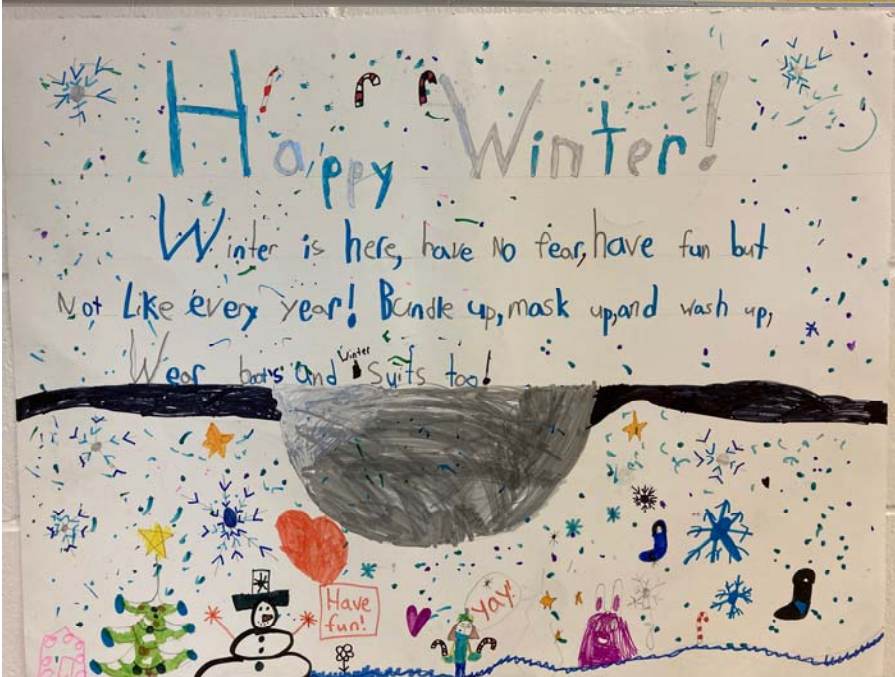 Happy Winter!
Winter is here, have No fear, have fun but
Not Like every year! Bundle up, mask up, and wash up,
Wear boots and Winter Suits too!
Have
fun!
YAY!